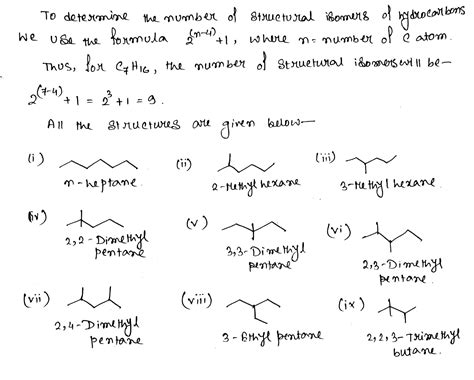 To determine the number of structural isomers of hydrocarbons
we use the formula 2^(n-4)+1, where n = number of C atom.
Thus, for C₇H₁₆, the number of structural isomers will be-
2^(7-4) + 1 = 2³ + 1 = 9.
All the structures are given below-
(i) (ii) (iii)
n-heptane. 2-Methyl hexane. 3-Methyl hexane.
(iv) (v) (vi)
2,2-Dimethyl 3,3-Dimethyl 2,3-Dimethyl
pentane pentane pentane.
(vii) (viii) (ix)
2,4-Dimethyl 3-Ethyl pentane 2,2,3-Trimethyl
pentane butane.